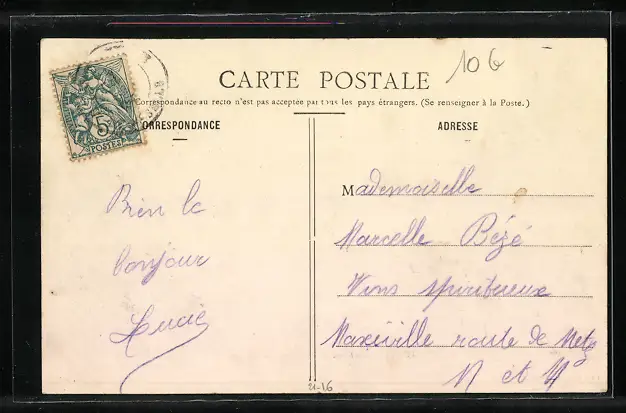 106
CARTE POSTALE
(La Correspondance au recto n'est pas acceptée par tous les pays étrangers. (Se renseigner à la Poste.)
CORRESPONDANCE
ADRESSE
5
POSTES
Bien le
bonjour
Lucie
Mademoiselle
Marcelle Bézé
Vins spiritueux
Maxéville route de Metz
M et Mle
21-16